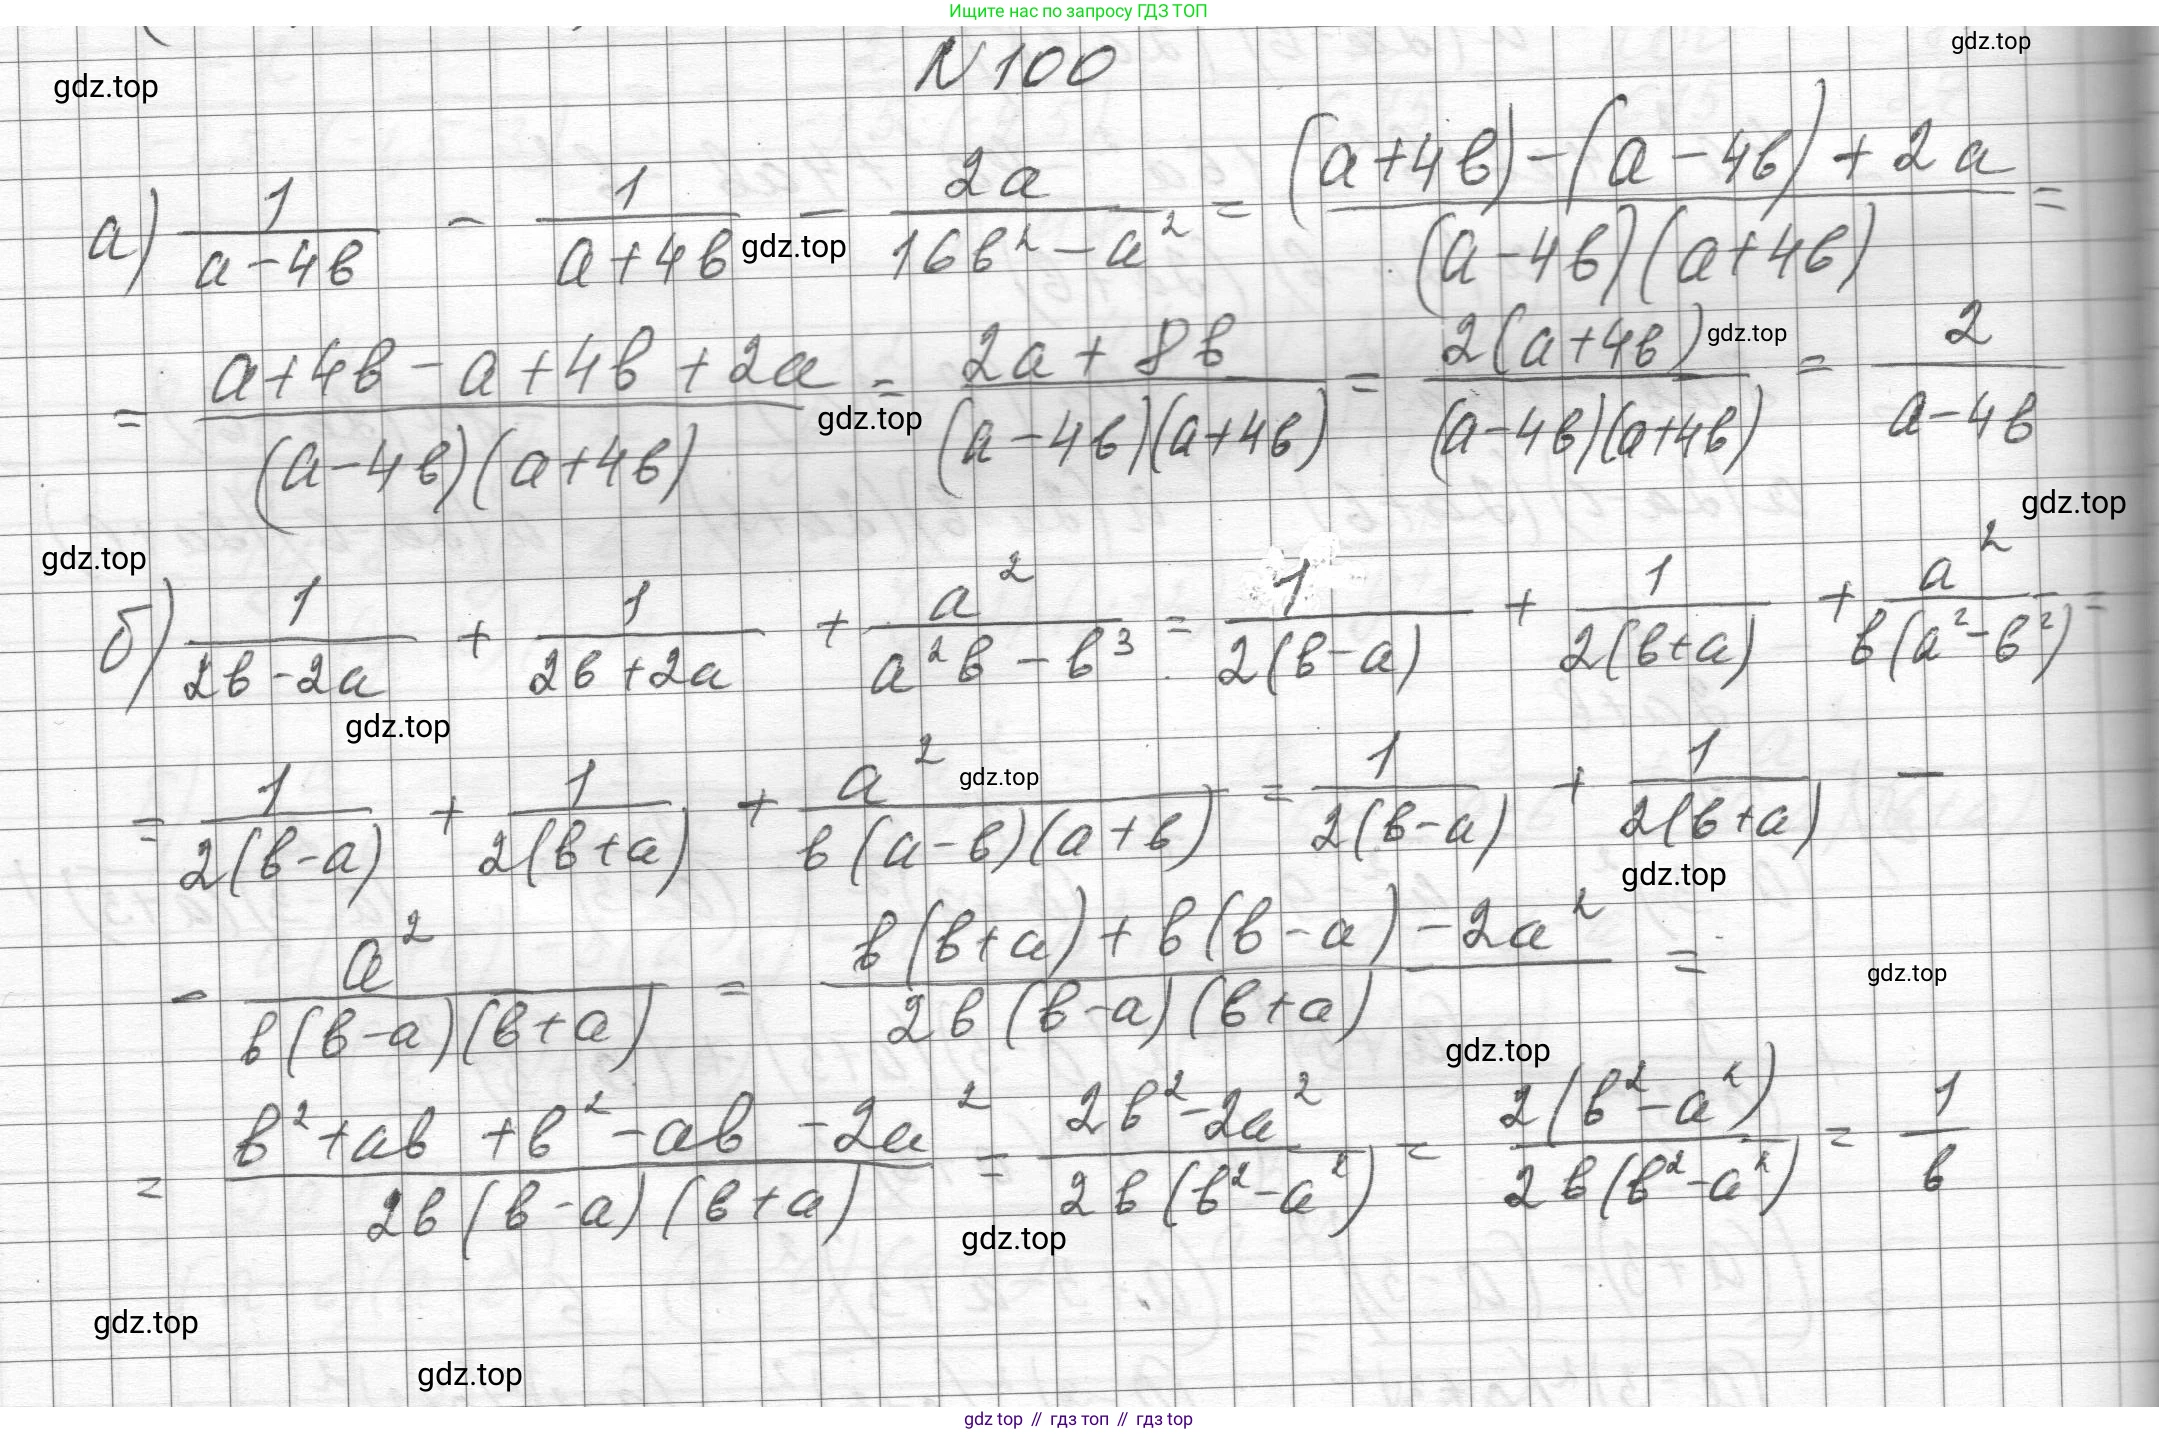 Ищите нас по запросу ГДЗ ТОП
gdz.top
gdz.top
N 100
а) 1/(a-4b) - 1/(a+4b) - 2a/(16b²-a²) = ((a+4b)-(a-4b)+2a)/((a-4b)(a+4b)) =
gdz.top
= (a+4b-a+4b+2a)/((a-4b)(a+4b)) = (2a+8b)/((a-4b)(a+4b)) = 2(a+4b)/((a-4b)(a+4b)) = 2/(a-4b)
gdz.top
gdz.top
gdz.top
gdz.top
б) 1/(2b-2a) + 1/(2b+2a) + a²/(a²b-b³) = 1/(2(b-a)) + 1/(2(b+a)) + a²/(b(a²-b²)) =
gdz.top
= 1/(2(b-a)) + 1/(2(b+a)) + a²/(b(a-b)(a+b)) = 1/(2(b-a)) + 1/(2(b+a)) -
gdz.top
gdz.top
- a²/(b(b-a)(b+a)) = (b(b+a)+b(b-a)-2a²)/(2b(b-a)(b+a)) =
gdz.top
gdz.top
= (b²+ab+b²-ab-2a²)/(2b(b-a)(b+a)) = (2b²-2a²)/(2b(b²-a²)) = 2(b²-a²)/(2b(b²-a²)) = 1/b
gdz.top
gdz.top
gdz.top
gdz top // гдз топ // гдз top